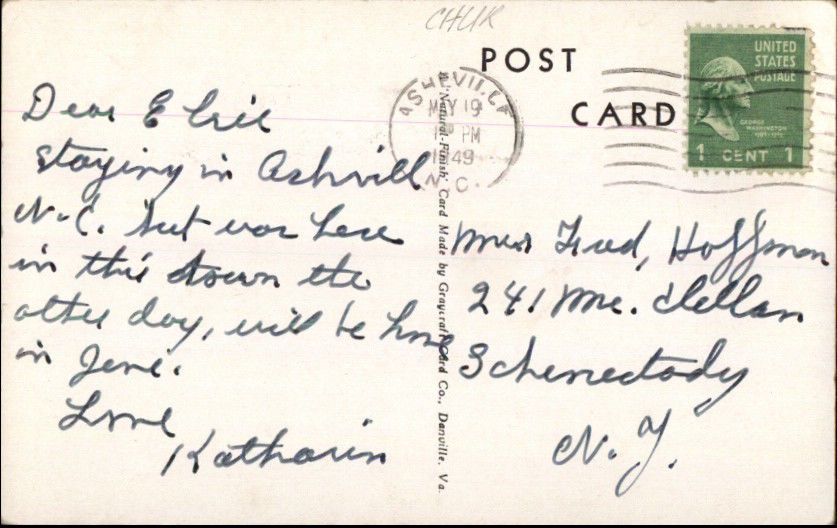 CHUR
POST
CARD
ASHEVILLE
MAY 19
PM
1949
N. C.
UNITED
STATES
POSTAGE
GEORGE
WASHINGTON
1 CENT 1
Dear Elsie
staying in Ashvill
N.C. but was here
in this town the
other day, will be home
in June.
Love
Katharin
"Natural-Finish" Card Made by Graycraft Card Co., Danville, Va.
Mrs Fred, Hoffman
241 Mc. Clellan
Schenectady
N.Y.